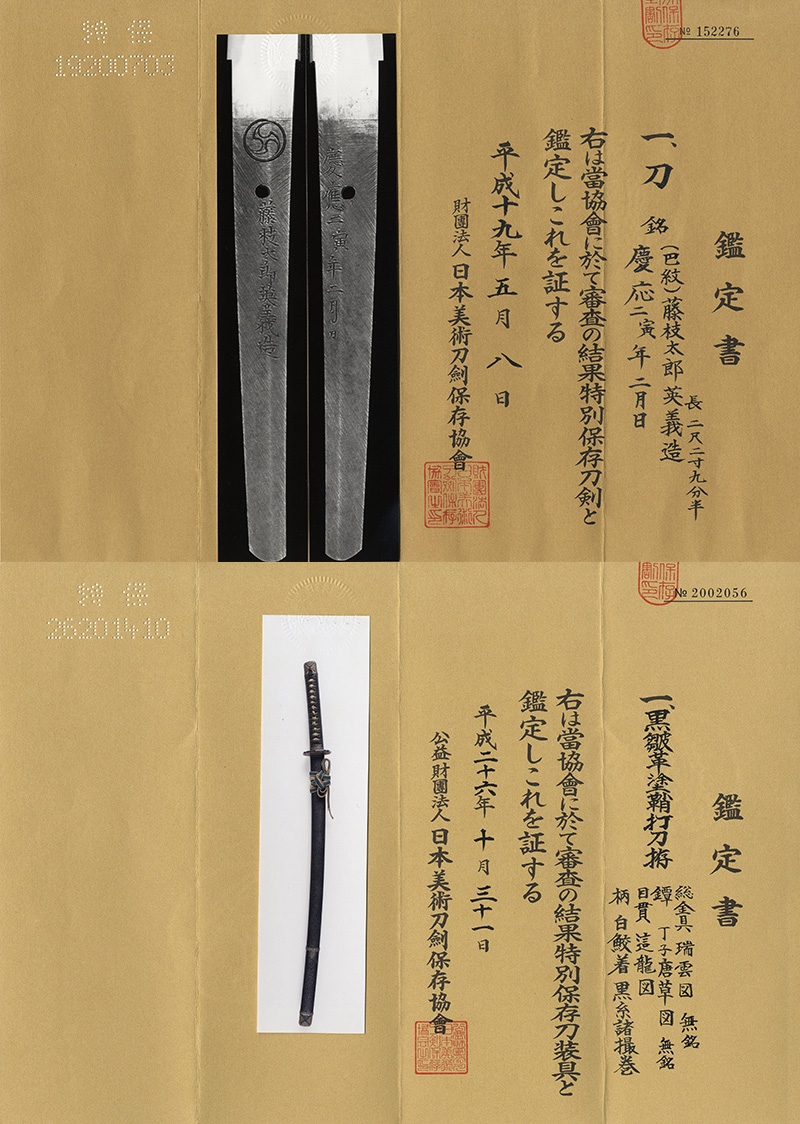 特保
19200703
№ 152276
鑑定書
一、刀 銘 (巴紋)藤枝太郎英義造
慶応二寅年二月日
長 二尺二寸九分半
右は當協會に於て審査の結果特別保存刀剣と
鑑定しこれを証する
平成十九年五月八日
財團法人日本美術刀劍保存協會
慶應二寅年二月日
藤枝太郎英義造
特保
26201410
№ 2002056
鑑定書
一、黒皺革塗鞘打刀拵
総金具 瑞雲図 無銘
鐔 丁子唐草図 無銘
目貫 這龍図
柄 白鮫着 黒糸諸撮巻
右は當協會に於て審査の結果特別保存刀装具と
鑑定しこれを証する
平成二十六年十月三十一日
公益財團法人日本美術刀劍保存協會